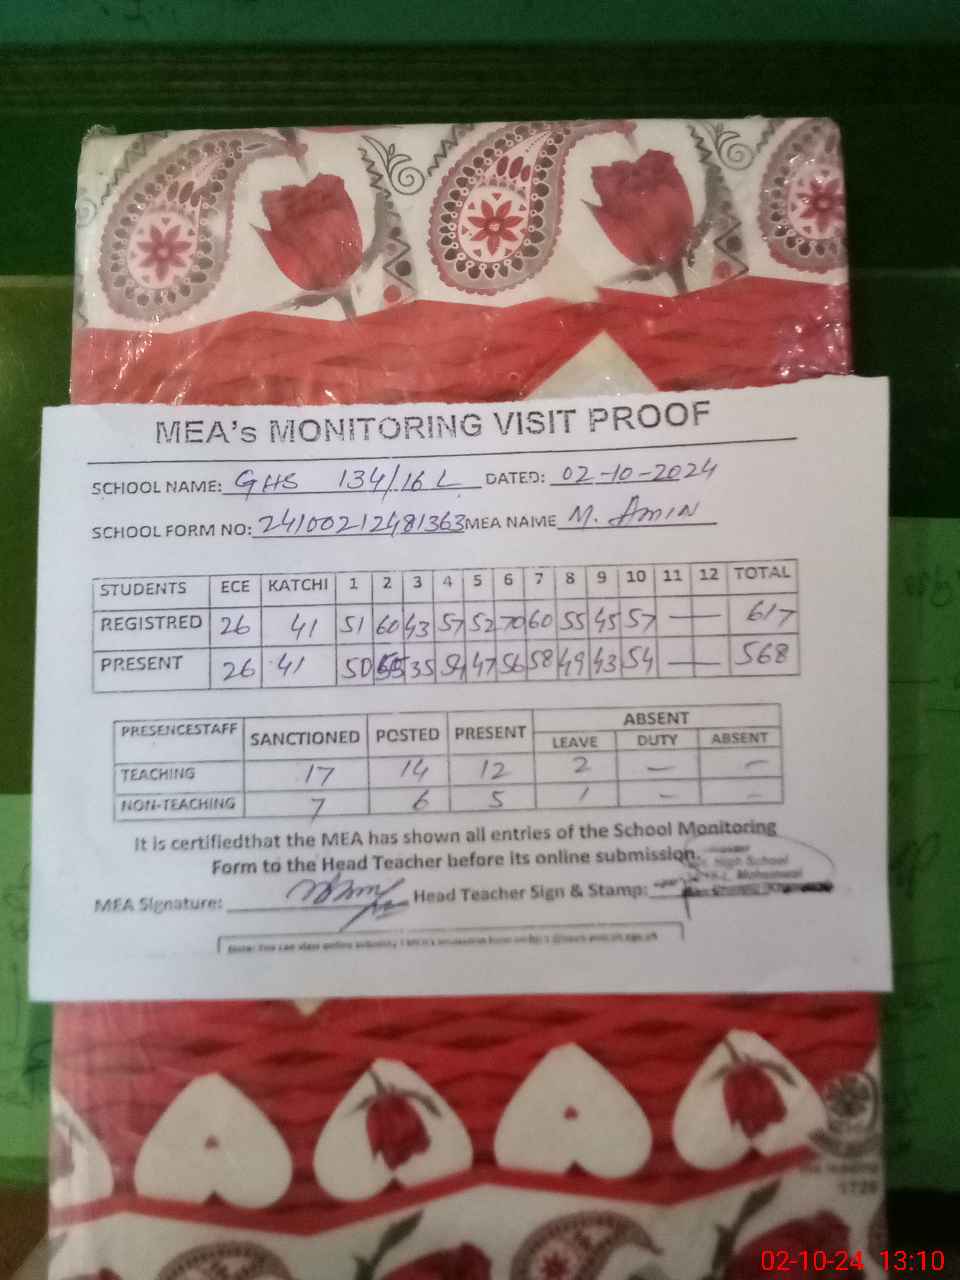 MEA's MONITORING VISIT PROOF
SCHOOL NAME: GHS 134/16 L DATED: 02-10-2024
SCHOOL FORM NO: 24100212481363 MEA NAME M. AMIN
STUDENTS ECE KATCHI 1 2 3 4 5 6 7 8 9 10 11 12 TOTAL
REGISTRED 26 41 51 60 43 57 52 70 60 55 45 57 — — 617
PRESENT 26 41 50 55 35 54 47 56 58 49 43 54 — — 568
PRESENCESTAFF SANCTIONED POSTED PRESENT ABSENT
LEAVE DUTY ABSENT
TEACHING 17 14 12 2 — —
NON-TEACHING 7 6 5 1 — —
It is certifiedthat the MEA has shown all entries of the School Monitoring
Form to the Head Teacher before its online submission.
High School
MEA Signature: Head Teacher Sign & Stamp:
02-10-24 13:10